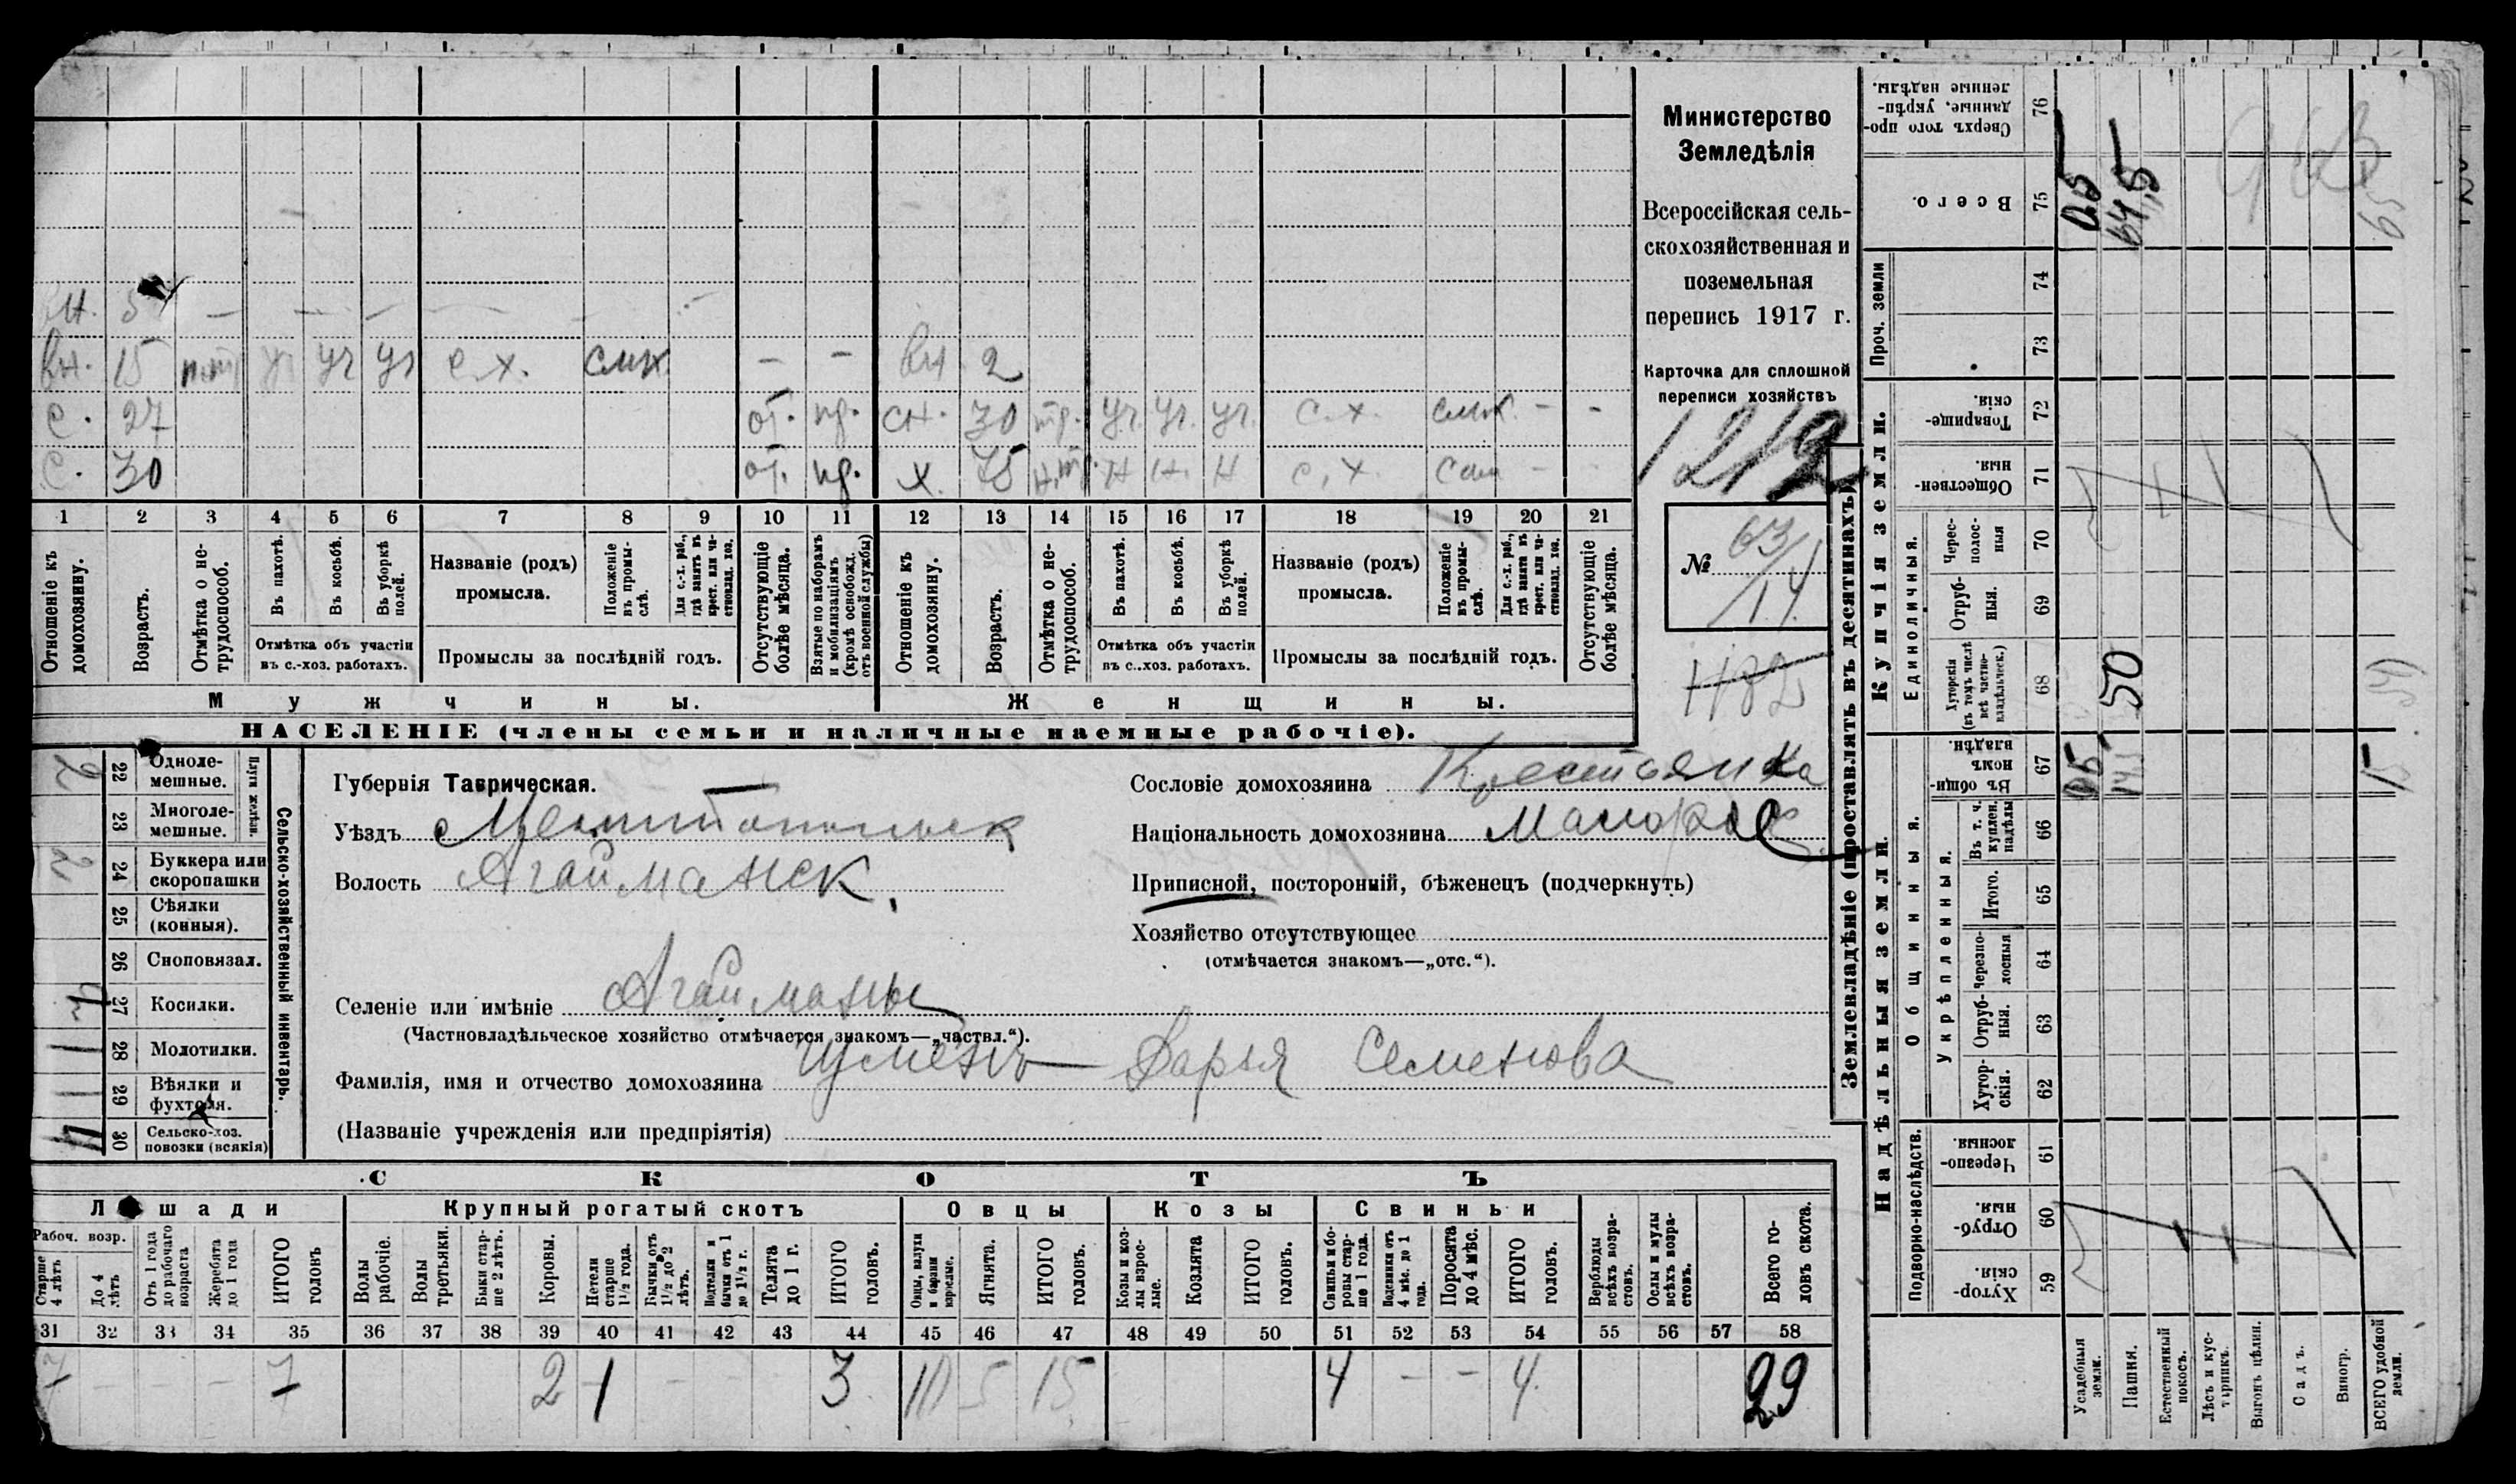 Министерство
Земледѣлія
Всероссійская сель-
скохозяйственная и
поземельная
перепись 1917 г.
Карточка для сплошной
переписи хозяйствъ
1212
№ 63/14
1182
5
вн. 15 уч уч с.х.
с. 27 от. пр.
с. 30 от. пр.
вн. 2
сн. 30 тр. уч. уч. уч. с.х. - -
х. 75 н.тр. н н. н с.х. сам - -
1 2 3 4 5 6 7 8 9 10 11 12 13 14 15 16 17 18 19 20 21
Отношеніе къ домохозяину.
Возрастъ.
Отмѣтка о не-трудоспособ.
Въ пахотѣ.
Въ косьбѣ.
Въ уборкѣ полей.
Отмѣтка объ участіи въ с.-хоз. работахъ.
Названіе (родъ) промысла.
Положеніе въ промы-слѣ.
Для с.-х. раб., гдѣ занятъ въ крест. или ча-стновлад. хоз.
Промыслы за послѣдній годъ.
Отсутствующіе болѣе мѣсяца.
Взятые по наборамъ и мобилизаціямъ (кромѣ освобожд. отъ военной службы)
Отношеніе къ домохозяину.
Возрастъ.
Отмѣтка о не-трудоспособ.
Въ пахотѣ.
Въ косьбѣ.
Въ уборкѣ полей.
Отмѣтка объ участіи въ с..хоз. работахъ.
Названіе (родъ) промысла.
Положеніе въ промы-слѣ.
Для с.-х. раб., гдѣ занята въ крест. или ча-стновлад. хоз.
Промыслы за послѣдній годъ.
Отсутствующіе болѣе мѣсяца.
Мужчины. Женщины.
НАСЕЛЕНІЕ (члены семьи и наличные наемные рабочіе).
Сельско-хозяйственный инвентарь.
Плуги желѣзн.
2 22 Одноле-мешные.
23 Многоле-мешные.
2 24 Буккера или скоропашки
25 Сѣялки (конныя).
26 Сноповязал.
27 Косилки.
1 28 Молотилки.
1 29 Вѣялки и фухтеля.
4 30 Сельско-хоз. повозки (всякія)
Губернія Таврическая.
Уѣздъ Мелитопольск
Волость Агайманск.
Селеніе или имѣніе Агайманы
(Частновладѣльческое хозяйство отмѣчается знакомъ—„частвл.“).
Фамилія, имя и отчество домохозяина Дарья Семенова
(Названіе учрежденія или предпріятія)
Сословіе домохозяина Крестьянка
Національность домохозяина Малорос
Приписной, посторонній, бѣженецъ (подчеркнуть)
Хозяйство отсутствующее
(отмѣчается знакомъ—„отс.“).
СКОТЪ
Лошади Крупный рогатый скотъ Овцы Козы Свиньи
Рабоч. возр.
Старше 4 лѣтъ
До 4 лѣтъ
Отъ 1 года до рабочаго возраста
Жеребята до 1 года
ИТОГО головъ
Волы рабочіе.
Волы третьяки.
Быки стар-ше 2 лѣтъ.
Коровы.
Нетели старше 1½ года.
Бычки отъ 1½ до 2 лѣтъ.
Подтелки и бычки отъ 1 до 1½ г.
Телята до 1 г.
ИТОГО головъ.
Овцы, валухи и бараны взрослые.
Ягнята.
ИТОГО головъ.
Козы и коз-лы взрос-лые.
Козлята
ИТОГО головъ.
Свиньи и бо-ровы стар-ше 1 года.
Подсвинки отъ 4 мѣс. до 1 года.
Поросята до 4 мѣс.
ИТОГО головъ.
Верблюды всѣхъ возра-стовъ.
Ослы и мулы всѣхъ возра-стовъ.
Всего го-ловъ скота.
31 32 33 34 35 36 37 38 39 40 41 42 43 44 45 46 47 48 49 50 51 52 53 54 55 56 57 58
7 - - - 7 2 1 - - 3 10 5 15 4 - - 4 29
Землевладѣніе (проставлять въ десятинахъ)
Надѣльныя земли. Купчія земли.
Подворно-наслѣдств.
Общинныя.
Укрѣпленныя.
Единоличныя.
Проч. земли
Хутор-скія. 59
Отруб-ныя. 60
Черезпо-лосныя. 61
Хутор-скія. 62
Отруб-ныя. 63
Черезпо-лосныя 64
Итого. 65
Въ т. ч. куплен. надѣлы 66
Въ общин-номъ владѣн. 67
Хуторскія (въ томъ числѣ всѣ частно-владѣльческ.) 68
Отруб-ныя. 69
Черес-полос-ныя 70
Обществен-ныя. 71
Товарище-скія. 72
73
74
Всего. 75
Сверхъ того про-данные, укрѣп-ленные надѣлы. 76
Усадебныя земли. 0,5 0,5
Пашня. 14,5 50 64,5
Естественный покосъ.
Лѣсъ и кус-тарникъ.
Выгонъ цѣлин.
Садъ.
Виногр.
ВСЕГО удобной земли. 65